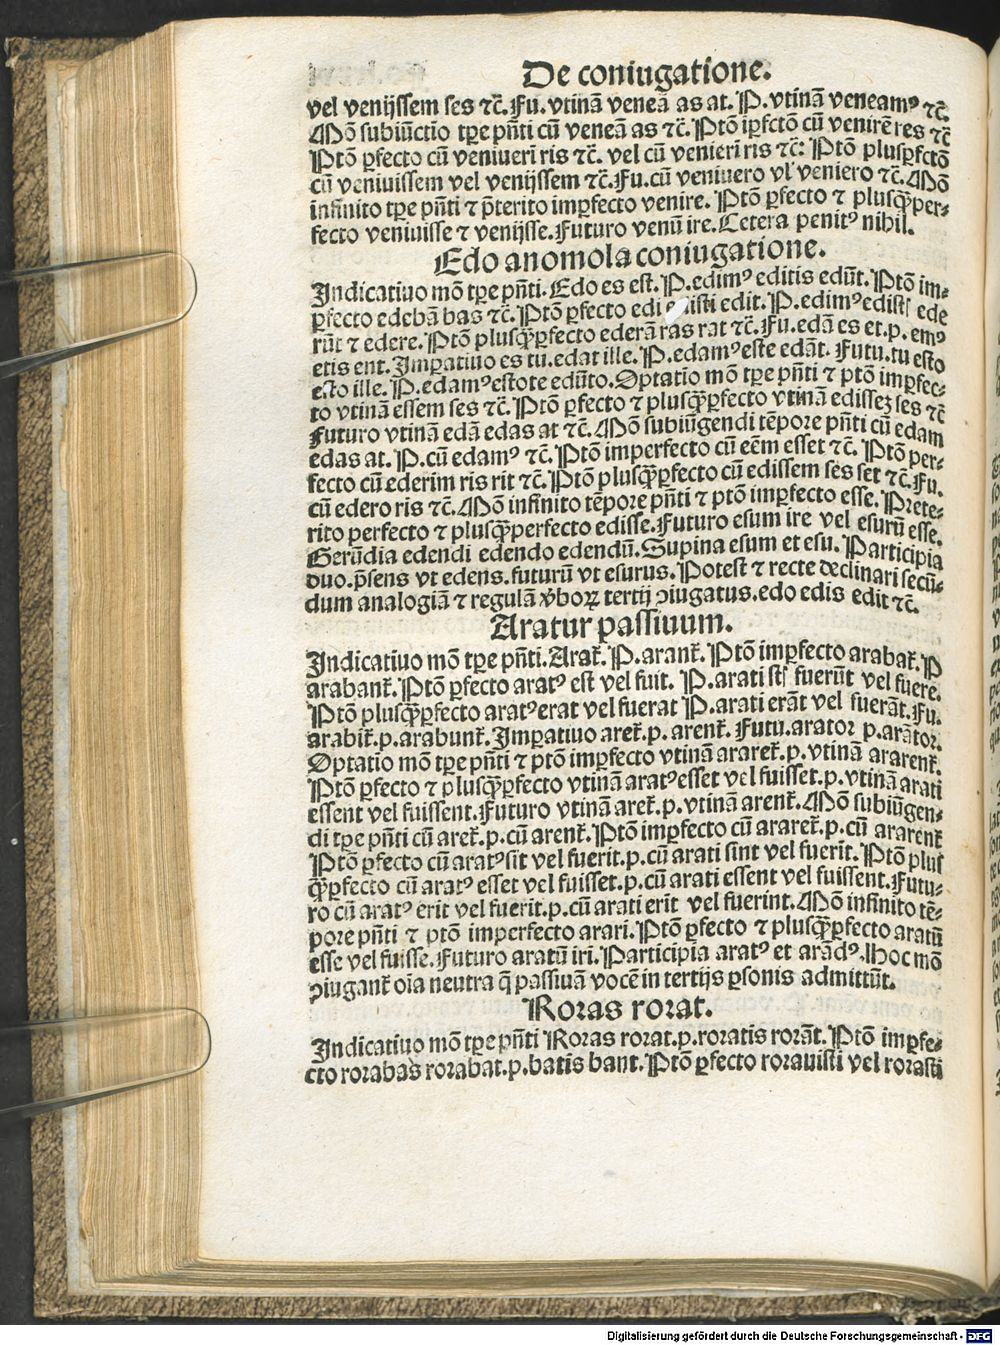 De coniugatione.
vel venijssem ses ⁊c̄. Fu. vtinā veneā as at. P. vtinā veneamꝰ ⁊c̄.
Mō subiūctio tꝑe pn̄ti cū veneā as ⁊c̄. Ptō iꝑfctō cū venirē res ⁊c̄
Ptō ꝑfecto cū veniueri ris ⁊c̄. vel cū venieri ris ⁊c̄: Ptō plusꝑfctō
cū veniuissem vel venijssem ⁊c̄. Fu. cū veniuero vl' veniero ⁊c̄. Mō
infinito tꝑe pn̄ti ⁊ p̄terito imꝑfecto venire. Ptō ꝑfecto ⁊ plusq̄ꝑper-
fecto veniuisse ⁊ venijsse. Futuro venū ire. Cetera penitꝰ nihil.
Edo anomola coniugatione.
Indicatiuo mō tꝑe pn̄ti. Edo es est. P. edimꝰ editis edūt. Ptō im-
ꝑfecto edebā bas ⁊c̄. Ptō ꝑfecto edi edisti edit. P. edimꝰ edistſ ede
rūt ⁊ edere. Ptō plusq̄ꝑfecto ederā ras rat ⁊c̄. Fu. edā es et. p. emꝰ
etis ent. Imꝑatiuo es tu. edat ille. P. edamꝰ este edāt. Futu. tu esto
esto ille. P. edamꝰ estote edūto. Optatio mō tꝑe pn̄ti ⁊ ptō imꝑfec-
to vtinā essem ses ⁊c̄. Ptō ꝑfecto ⁊ plusq̄ꝑfecto vtinā edisseꝫ ses ⁊c̄
Futuro vtinā edā edas at ⁊c̄. Mō subiūgendi tēpore pn̄ti cū edam
edas at. P. cū edamꝰ ⁊c̄. Ptō imperfecto cū eēm esset ⁊c̄. Ptō per-
fecto cū ederim ris rit ⁊c̄. Ptō plusq̄ꝑfecto cū edissem ses set ⁊c̄. Fu.
cū edero ris ⁊c̄. Mō infinito tēpore pn̄ti ⁊ ptō imꝑfecto esse. Prete-
rito perfecto ⁊ plusq̄ꝑperfecto edisse. Futuro esum ire vel esurū esse.
Gerūdia edendi edendo edendū. Supina esum et esu. Participia
duo. p̄sens vt edens. futurū vt esurus. Potest ⁊ recte declinari secū-
dum analogiā ⁊ regulā v̓boꝝ tertij ↄiugatus. edo edis edit ⁊c̄.
Aratur passiuum.
Indicatiuo mō tꝑe pn̄ti. Arat̄. P. arant̄. Ptō imꝑfecto arabat̄. P
arabant̄. Ptō ꝑfecto aratꝰ est vel fuit. P. arati stſ fuerūt vel fuere.
Ptō plusq̄ꝑfecto aratꝰ erat vel fuerat P. arati erāt vel fuerāt. Fu.
arabit̄. p. arabunt̄. Imꝑatiuo aret̄. p. arent̄. Futu. arator p. arātor.
Optatio mō tꝑe pn̄ti ⁊ ptō imꝑfecto vtinā araret̄. p. vtinā ararent̄.
Ptō ꝑfecto ⁊ plusq̄ꝑfecto vtinā aratꝰ esset vel fuisset. p. vtinā arati
essent vel fuissent. Futuro vtinā aret̄. p. vtinā arent̄. Mō subiūgen-
di tꝑe pn̄ti cū aret̄. p. cū arent̄. Ptō imꝑfecto cū araret̄. p. cū ararent̄
Ptō ꝑfecto cū aratꝰ sit vel fuerit. p. cū arati sint vel fuerīt. Ptō plus
q̄ꝑfecto cū aratꝰ esset vel fuisset. p. cū arati essent vel fuissent. Futu-
ro cū aratꝰ erit vel fuerit. p. cū arati erit vel fuerint. Mō infinito tē-
pore pn̄ti ⁊ ptō imperfecto arari. Ptō ꝑfecto ⁊ plusq̄ꝑfecto aratū
esse vel fuisse. Futuro aratū iri. Participia aratꝰ et arādꝰ. Hoc mō
ↄiugant̄ oīa neutra q̄ passiuā vocē in tertijs ꝑsonis admittūt.
Roras rorat.
Indicatiuo mō tꝑe pn̄ti Roras rorat. p. roratis rorāt. Ptō imꝑfe-
cto rorabas rorabat. p. batis bant. Ptō ꝑfecto rorauisti vel rorasti
Digitalisierung gefördert durch die Deutsche Forschungsgemeinschaft - DFG